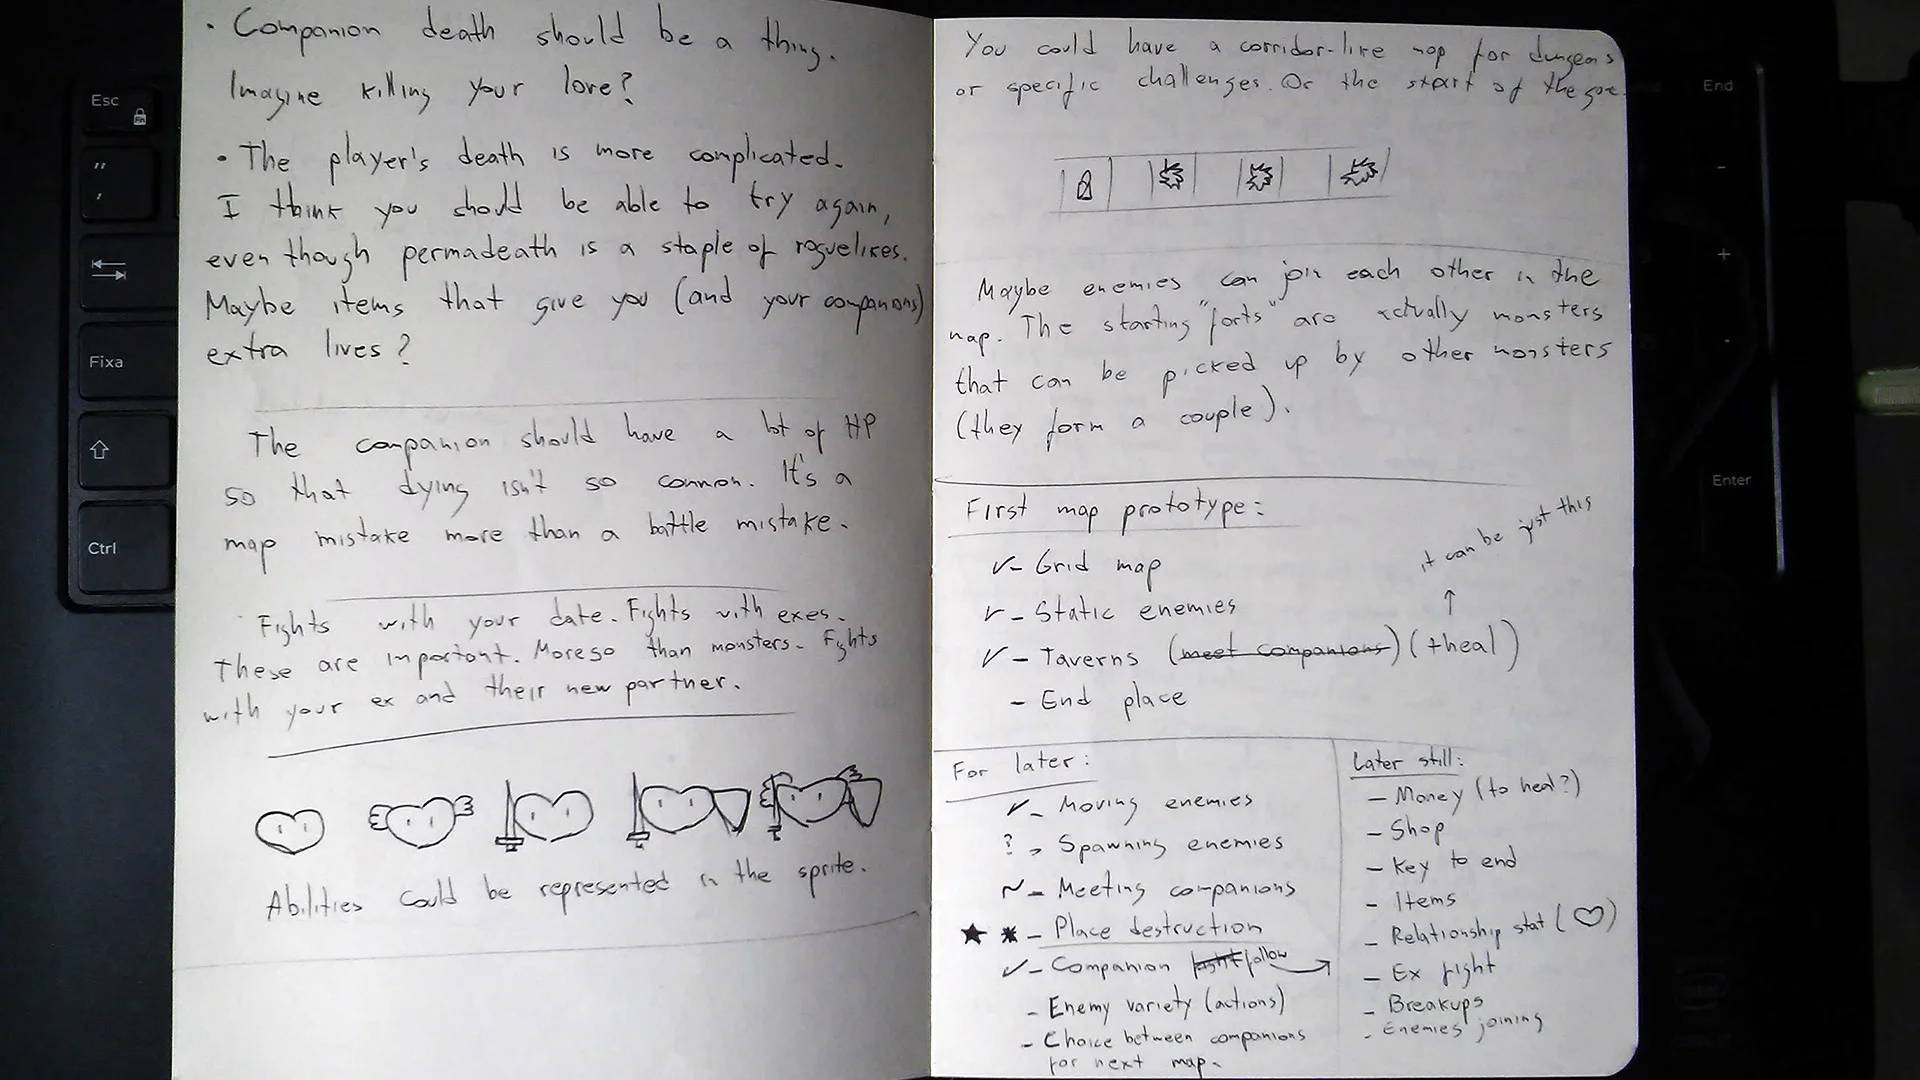 • Companion death should be a thing.
Imagine killing your love?
• The player's death is more complicated.
I think you should be able to try again,
even though permadeath is a staple of roguelikes.
Maybe items that give you (and your companions)
extra lives?
The companion should have a lot of HP
so that dying isn't so common. It's a
map mistake more than a battle mistake.
Fights with your date. Fights with exes.
These are important. Moreso than monsters. Fights
with your ex and their new partner.
Abilities could be represented in the sprite.
You could have a corridor-like map for dungeons
or specific challenges. Or the start of the
Maybe enemies can join each other in the
map. The starting "forts" are actually monsters
that can be picked up by other monsters
(they form a couple).
First map prototype:
it can be just this
↑
✓- Grid map
✓- Static enemies
✓- Taverns (meet companions) (+heal)
- End place
For later:
✓- Moving enemies
? - Spawning enemies
~- Meeting companions
★ * - Place destruction
✓- Companion fight follow →
- Enemy variety (actions)
- Choice between companions
for next map.
Later still:
- Money (to heal?)
- Shop
- Key to end
- Items
- Relationship stat (♡)
- Ex fight
- Breakups
- Enemies joining
Esc
Fn
"
'
Fixa
Ctrl
End
-
+
.
Enter